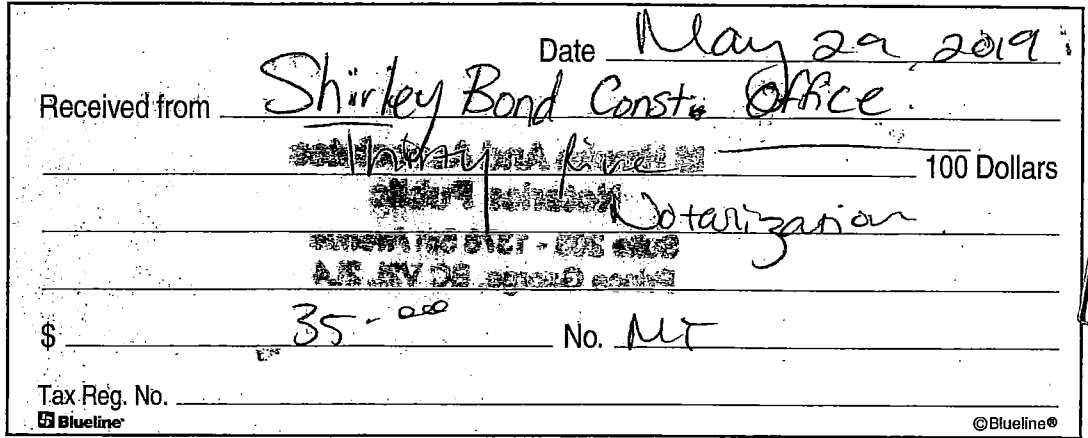 Date May 29, 2019
Received from Shirley Bond Const. Office.
Thirty five 100 Dollars
Notarization
$ 35-000 No. MT
Tax Reg. No.
Blueline ©Blueline®